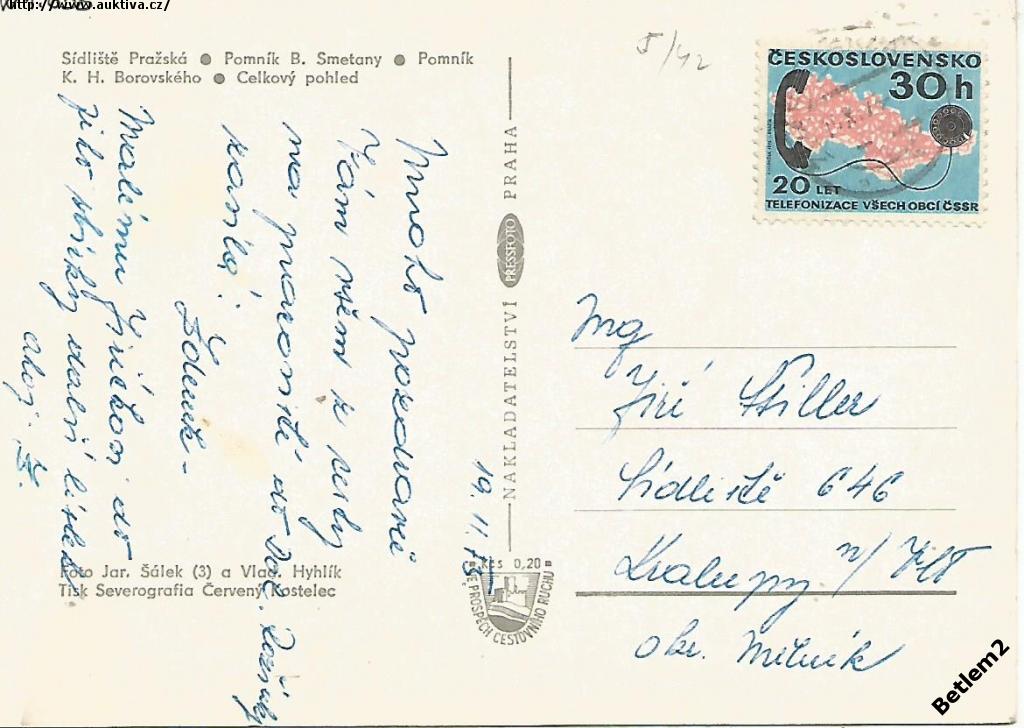 http://www.auktiva.cz/
Sídliště Pražská ● Pomník B. Smetany ● Pomník
K. H. Borovského ● Celkový pohled
5/42
ČESKOSLOVENSKO
30 h
20 LET
TELEFONIZACE VŠECH OBCÍ ČSSR
19. 11. 73
Mnoho pozdravů
Vám všem z cesty
na
Zdeněk
Malému Jiříkovi do
další lístek
ahoj Z.
NAKLADATELSTVÍ PRESSFOTO PRAHA
Ing
Jiří Stiller
Sídliště 646
Kralupy n/Vlt
okr. Mělník
Foto Jar. Šálek (3) a Vlad. Hyhlík
Tisk Severografia Červený Kostelec
Kčs 0,20
VE PROSPĚCH CESTOVNÍHO RUCHU
Betlem2